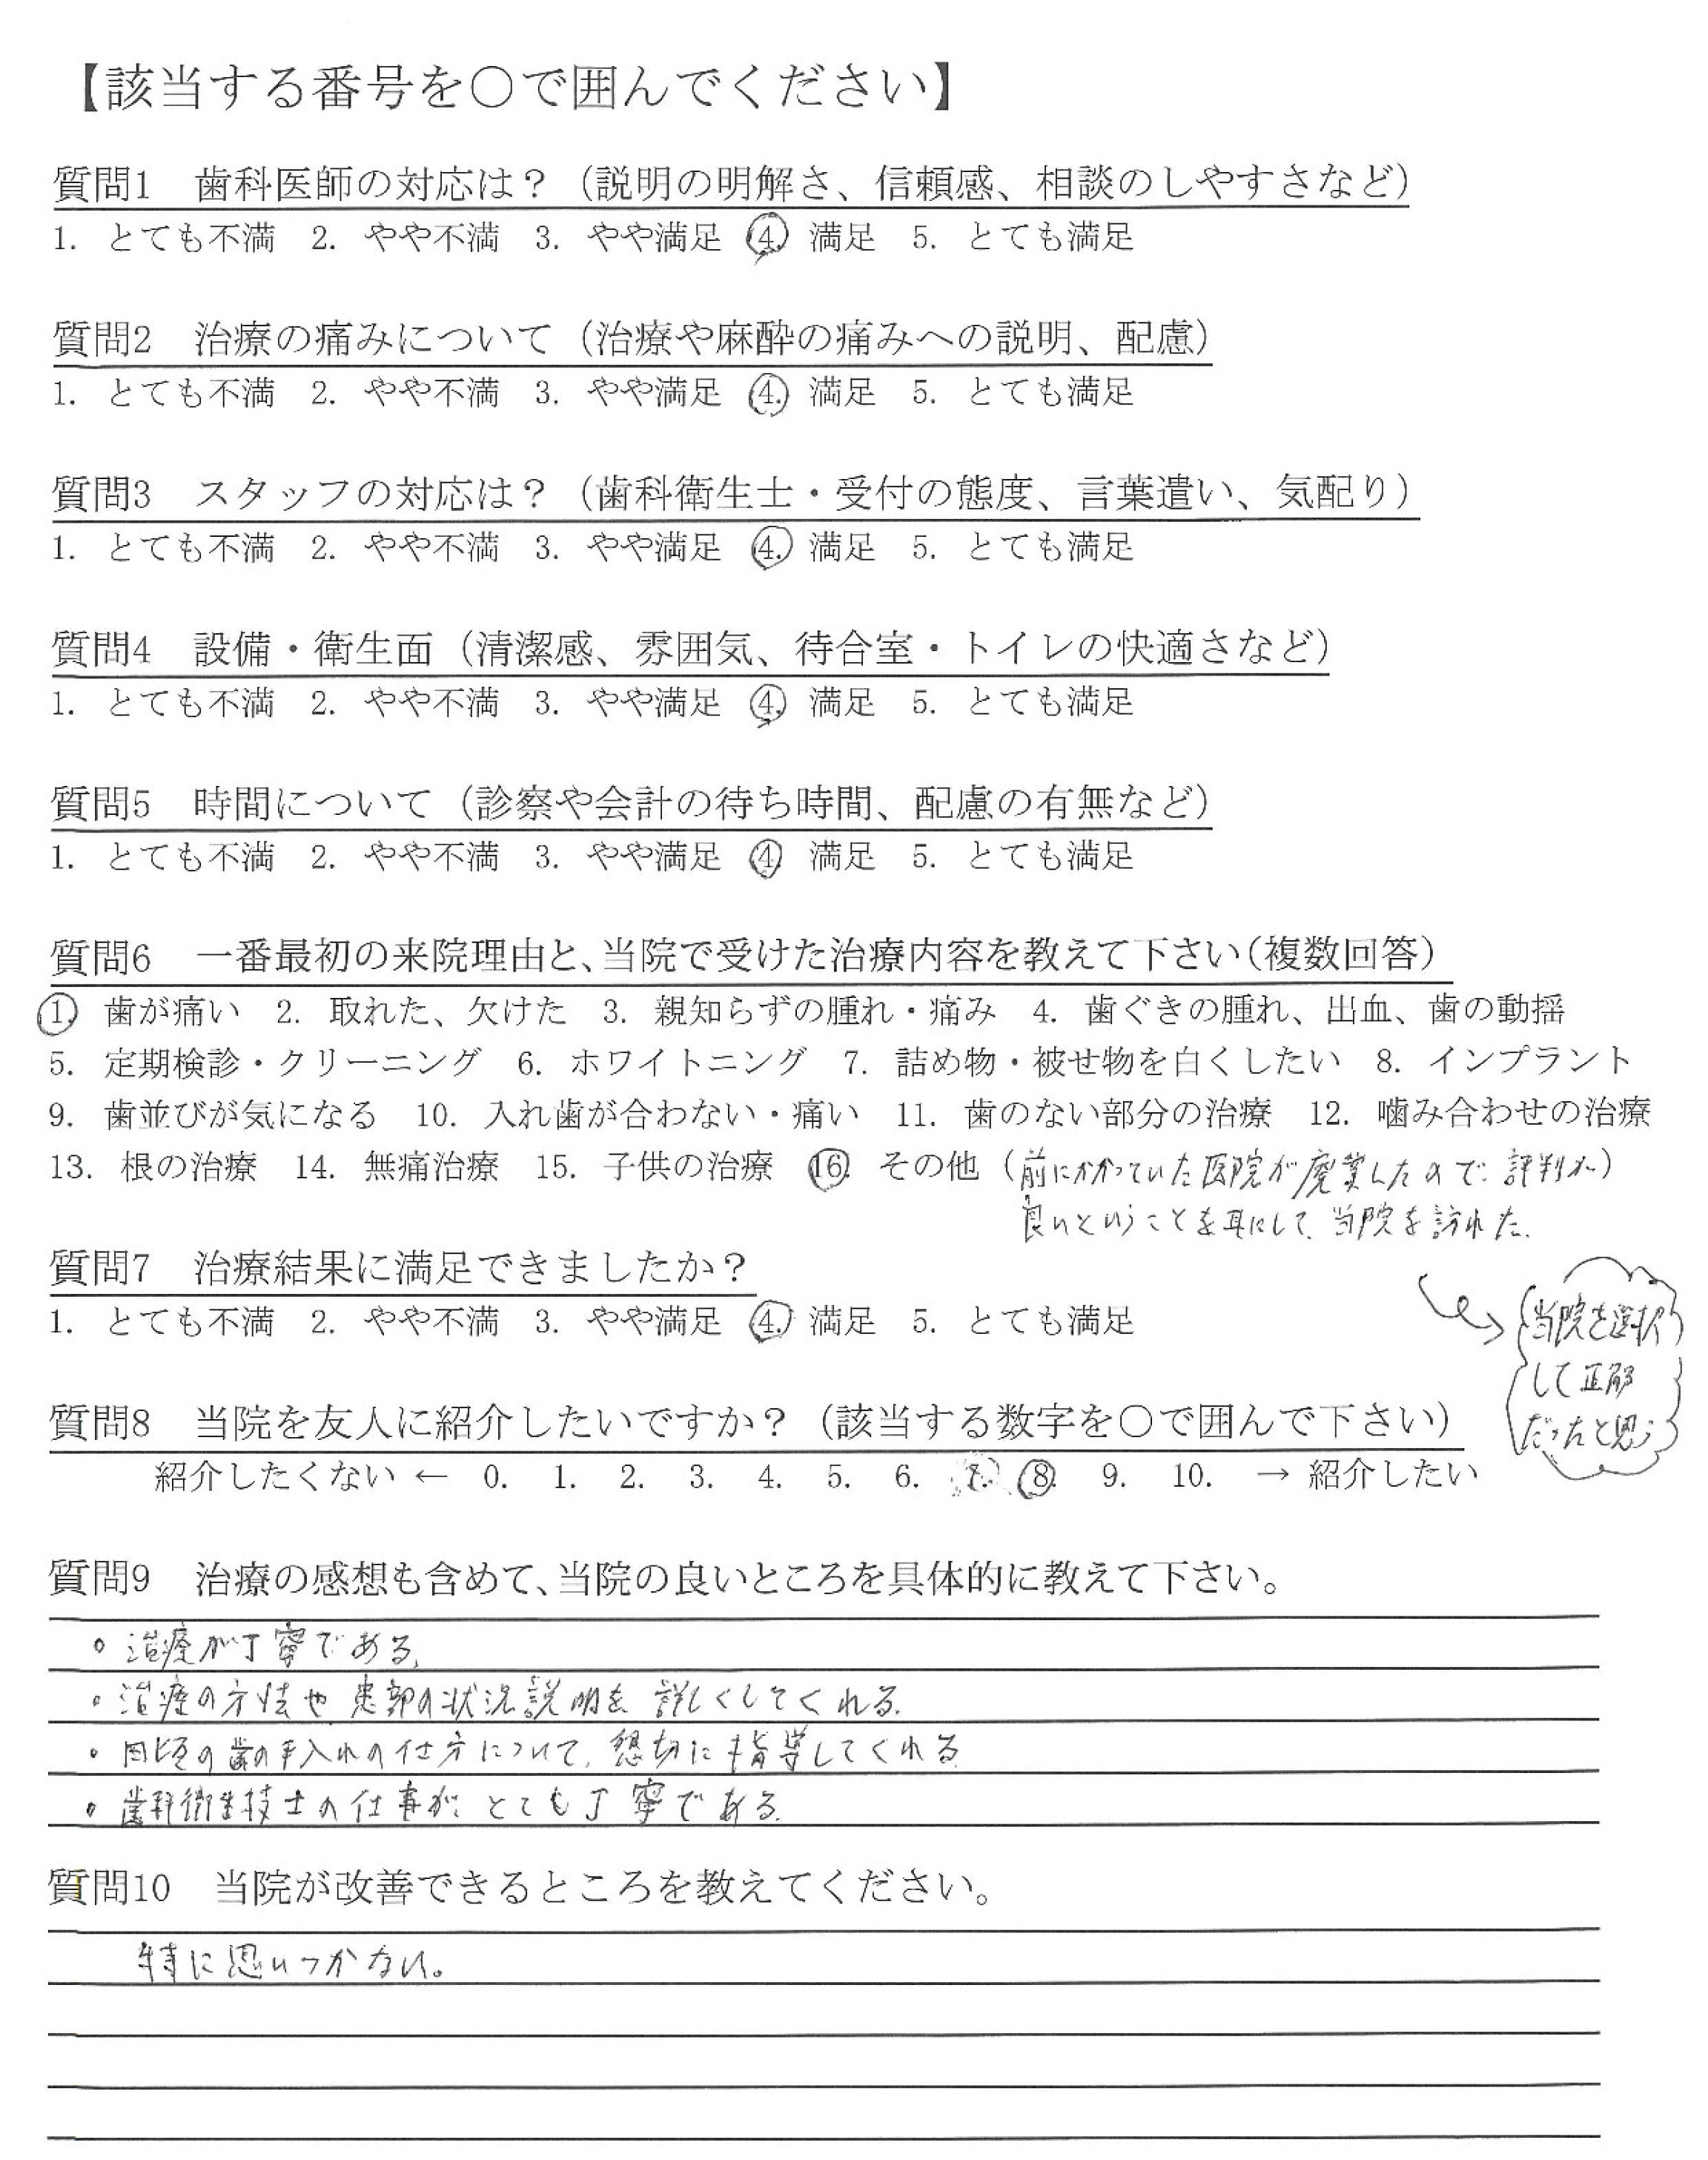 【該当する番号を〇で囲んでください】
質問1　歯科医師の対応は？（説明の明解さ、信頼感、相談のしやすさなど）
1. とても不満　2. やや不満　3. やや満足　4. 満足　5. とても満足
質問2　治療の痛みについて（治療や麻酔の痛みへの説明、配慮）
1. とても不満　2. やや不満　3. やや満足　4. 満足　5. とても満足
質問3　スタッフの対応は？（歯科衛生士・受付の態度、言葉遣い、気配り）
1. とても不満　2. やや不満　3. やや満足　4. 満足　5. とても満足
質問4　設備・衛生面（清潔感、雰囲気、待合室・トイレの快適さなど）
1. とても不満　2. やや不満　3. やや満足　4. 満足　5. とても満足
質問5　時間について（診察や会計の待ち時間、配慮の有無など）
1. とても不満　2. やや不満　3. やや満足　4. 満足　5. とても満足
質問6　一番最初の来院理由と、当院で受けた治療内容を教えて下さい（複数回答）
1. 歯が痛い　2. 取れた、欠けた　3. 親知らずの腫れ・痛み　4. 歯ぐきの腫れ、出血、歯の動揺
5. 定期検診・クリーニング　6. ホワイトニング　7. 詰め物・被せ物を白くしたい　8. インプラント
9. 歯並びが気になる　10. 入れ歯が合わない・痛い　11. 歯のない部分の治療　12. 噛み合わせの治療
13. 根の治療　14. 無痛治療　15. 子供の治療　16. その他（前にかかっていた医院が廃業したので、評判が）
良いということを耳にして、当院を訪れた。
質問7　治療結果に満足できましたか？
1. とても不満　2. やや不満　3. やや満足　4. 満足　5. とても満足
当院を選択
して正解
だったと思う
質問8　当院を友人に紹介したいですか？（該当する数字を〇で囲んで下さい）
紹介したくない ← 0. 1. 2. 3. 4. 5. 6. 7. 8. 9. 10. → 紹介したい
質問9　治療の感想も含めて、当院の良いところを具体的に教えて下さい。
・治療が丁寧である。
・治療の方法や患部の状況説明を詳しくしてくれる。
・日頃の歯の手入れの仕方について、懇切に指導してくれる
・歯科衛生技士の仕事がとても丁寧である。
質問10　当院が改善できるところを教えてください。
特に思いつかない。